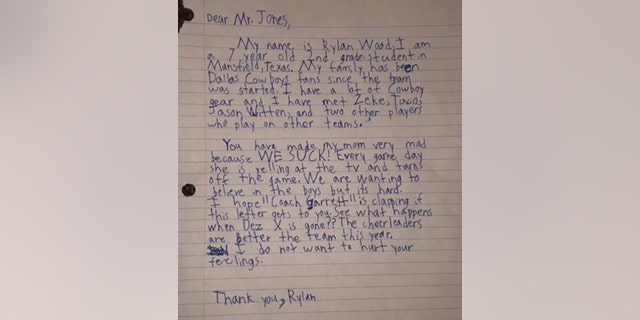 Dear Mr. Jones,
My name is Rylan Wood, I am
a 7 year old 2nd grade student in
Mansfield, Texas. My family has been
Dallas Cowboys fans since the team
was started. I have a lot of Cowboy
gear and I have met Zeke, Taco,
Jason Witten, and two other players
who play on other teams.
You have made my mom very mad
because WE SUCK! Every game day
she is yelling at the tv and turns
off the game. We are wanting to
believe in the boys but its hard.
I hope!! Coach garrett!! is claping if
this letter gets to you. See what happens
when Dez X is gone?? The cheerleaders
are better the team this year.
I do not want to hurt your
feelings.
Thank you, Rylan